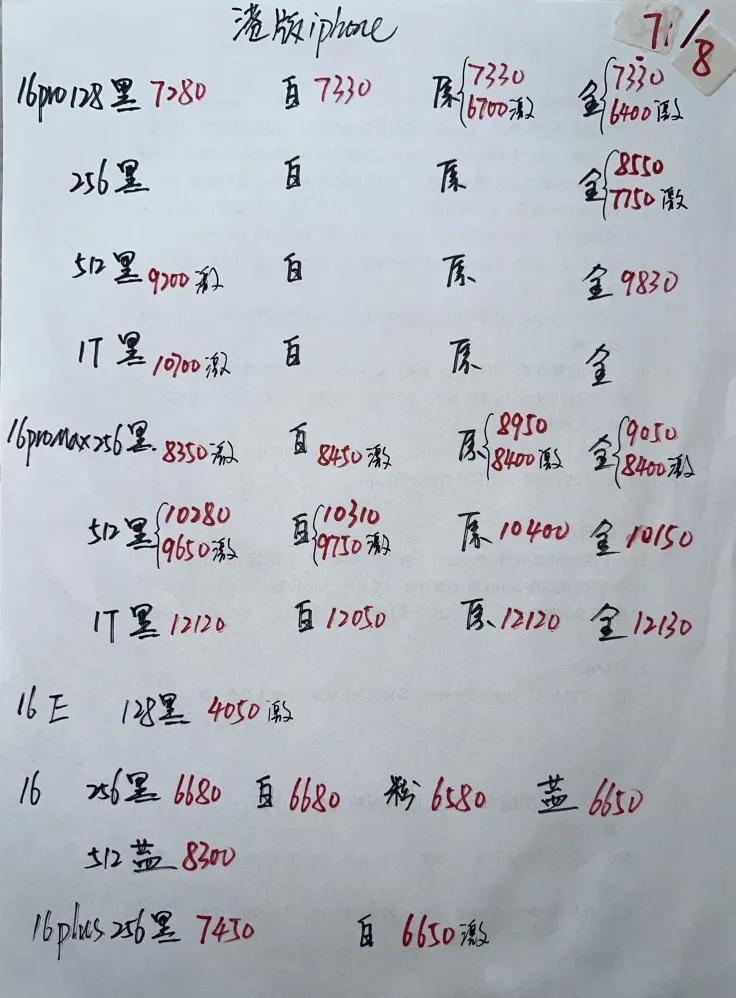 港版iphone 7/8
16pro128黑 7280 白 7330 原{7330 6700激 金{7330 6400激
256黑 白 原 金{8550 7750激
512黑 9200激 白 原 金 9830
1T黑 10700激 白 原 金
16promax256黑 8350激 白 8450激 原{8950 8400激 金{9050 8400激
512黑{10280 9650激 白{10310 9750激 原 10400 金 10150
1T黑 12120 白 12050 原 12120 金 12130
16E 128黑 4050激
16 256黑 6680 白 6680 粉 6580 蓝 6650
512蓝 8300
16plus256黑 7450 白 6650激